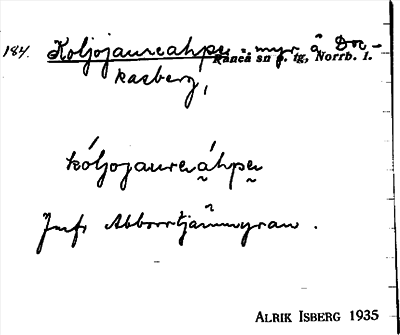 184. Koljojaureahpe. myr å Dor-
Råneå sn o. tg, Norrb. l.
kasberg,
kóljojaureáhpe
Jmfr Abborrtjärnmyran.
ALRIK ISBERG 1935